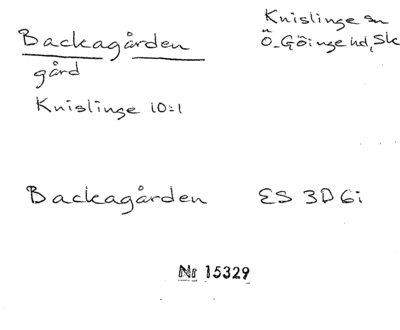 Backagården
gård
Knislinge 10:1
Knislinge sn
Ö-Göinge hd, Sk
Backagården ES 3D6i
Nr 15329